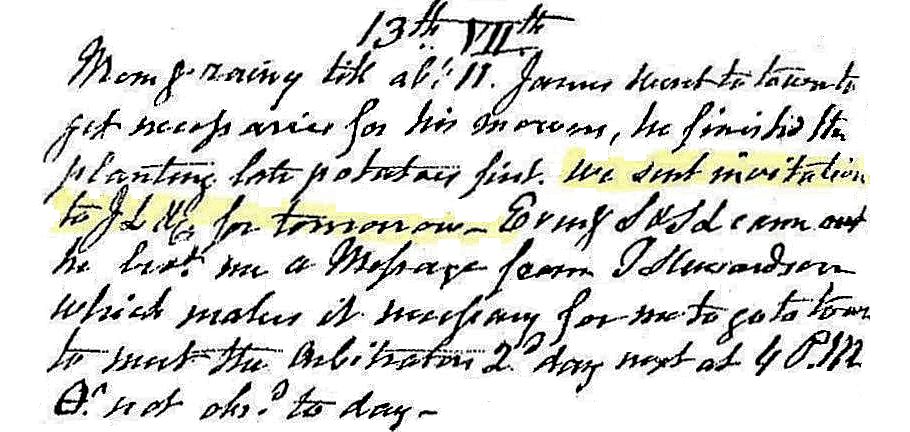 13th VIIth
Morng rainy till abt 11. James went to town to
get necessaries for his mowers, he finished the
planting late potatoes first. We sent invitation
to J L & for tomorrow – Evng S & S L came out
he brot me a Message from T Stewardson
which makes it necessary for me to go to town
to meet the Arbitrators 2d day next at 4 P.M
not obsd to day –